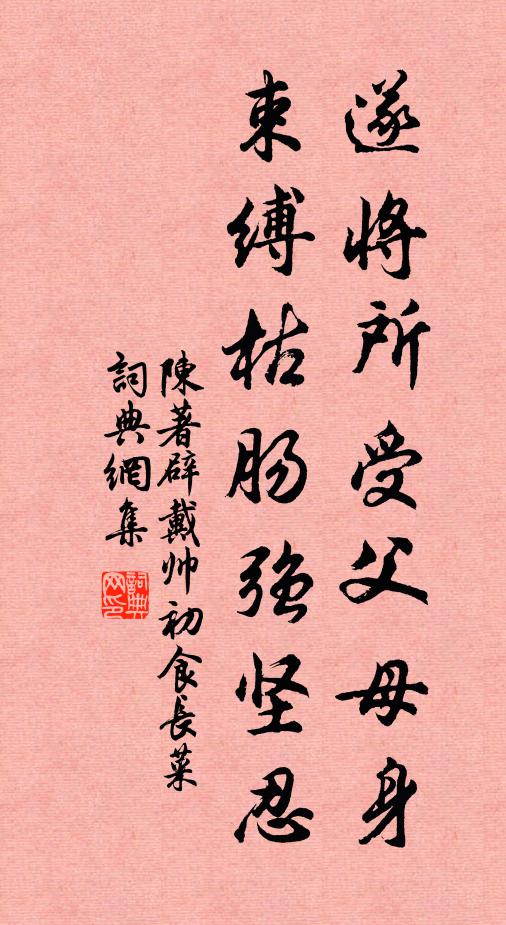 遂将所受父母身
束缚枯肠強坚忍
陳著辟戴帅初食長菜
詞典網集
詞典网印